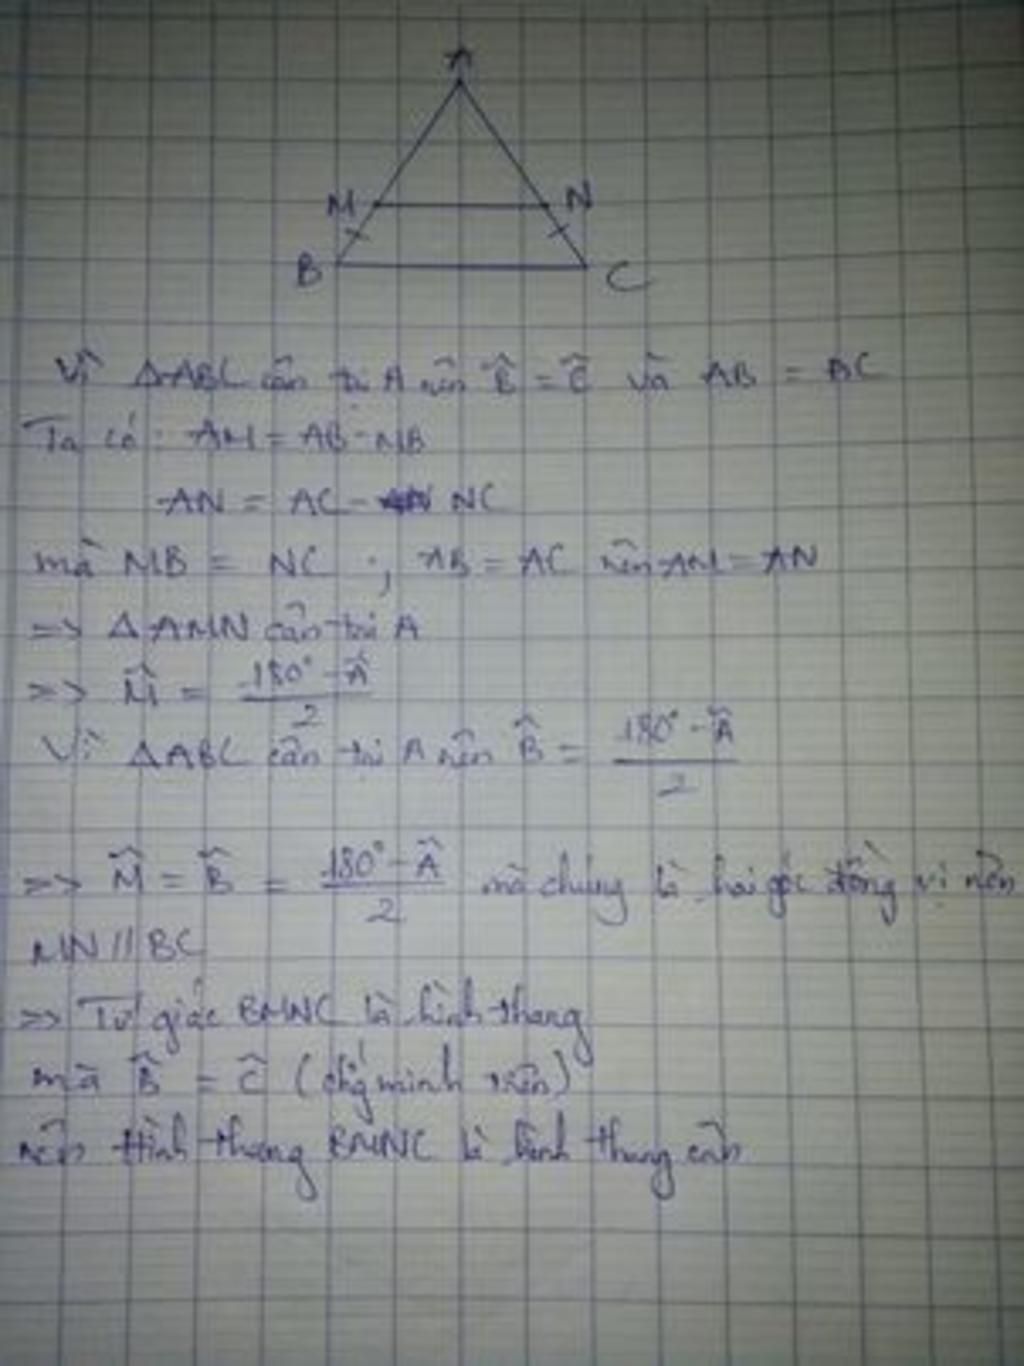 A
M N
B C
Vì ΔABC cân tại A nên B̂ = Ĉ và AB = AC
Ta có: AM = AB - MB
AN = AC - NC
mà MB = NC ; AB = AC nên AM = AN
=> ΔAMN cân tại A
=> M̂ = (180° - Â)/2
Vì ΔABC cân tại A nên B̂ = (180° - Â)/2
=> M̂ = B̂ = (180° - Â)/2 mà chúng là hai góc đồng vị nên
MN // BC
=> Tứ giác BMNC là hình thang
mà B̂ = Ĉ (chứng minh trên)
nên Hình thang BMNC là hình thang cân